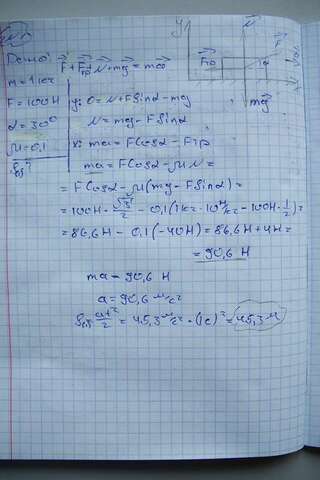 Дано:
F⃗ + F⃗тр + N⃗ + mg⃗ = ma⃗
m = 1 кг
F = 100 Н
α = 30°
μ = 0,1
y: 0 = N + F sin α - mg
N = mg - F sin α
x: ma = F cos α - Fтр
ma = F cos α - μN =
= F cos α - μ(mg - F sin α) =
= 100 Н · √3/2 - 0,1(1 кг · 10 Н/кг - 100 Н · 1/2) =
= 86,6 Н - 0,1(-40 Н) = 86,6 Н + 4 Н =
= 90,6 Н
ma = 90,6 Н
a = 90,6 м/с²
at²/2 = 45,3 м/с² · (1с)² = 45,3 м
y
N⃗
F⃗
Fтр
α
x
mg⃗